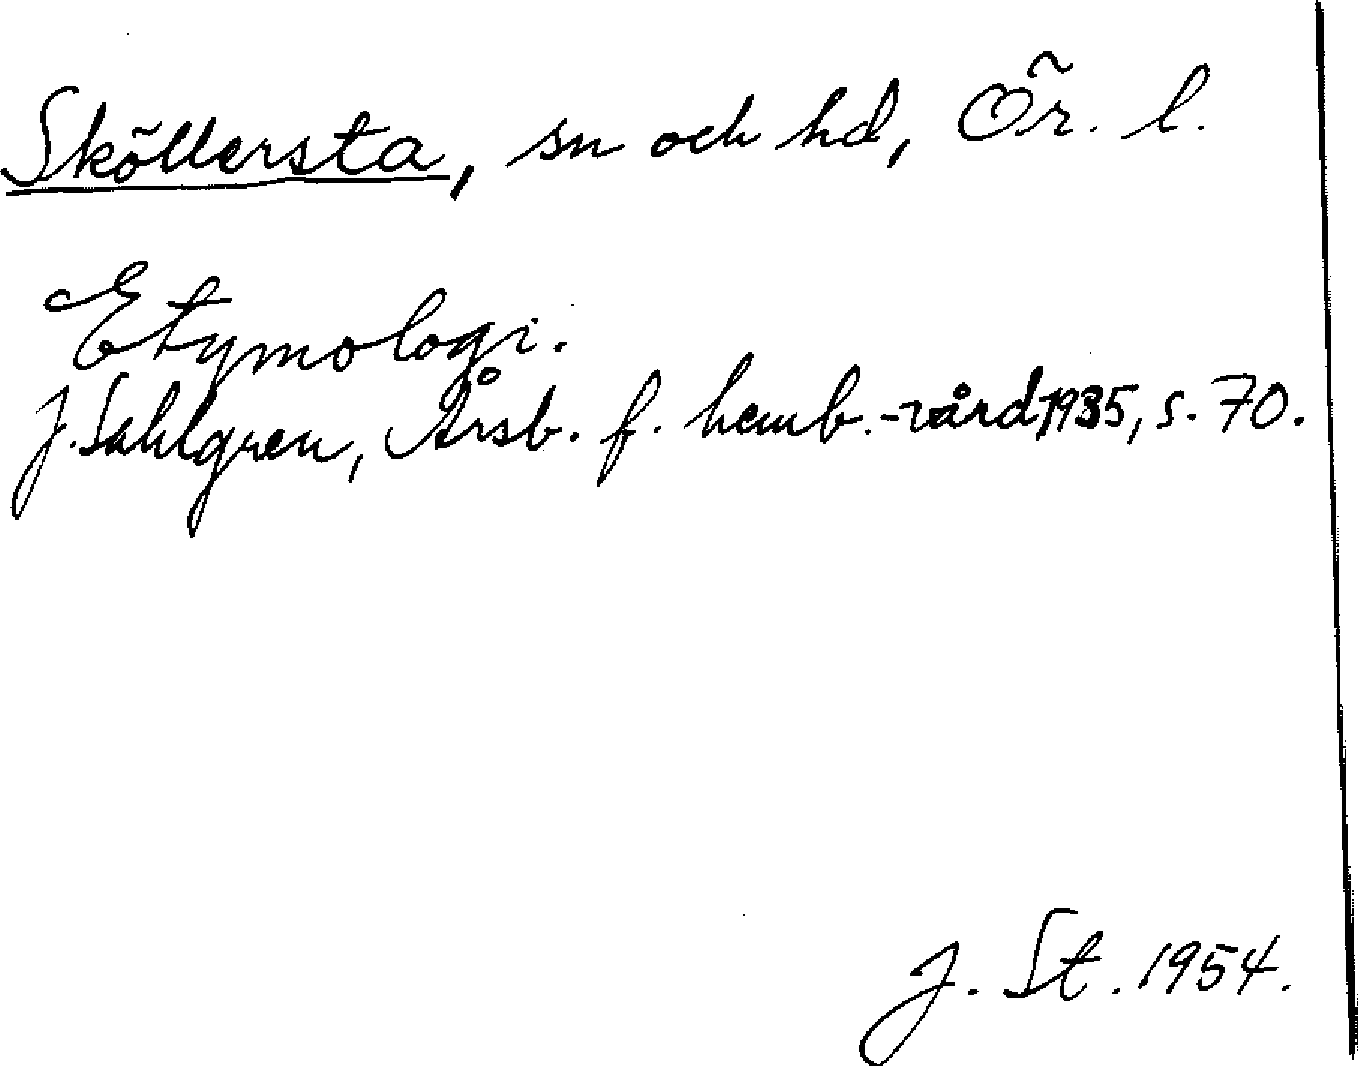 Sköllersta, sn och hd, Ör. l.
Etymologi.
J. Sahlgren, Årsb. f. hemb.-vård 1935, s. 70.
J. St. 1954.